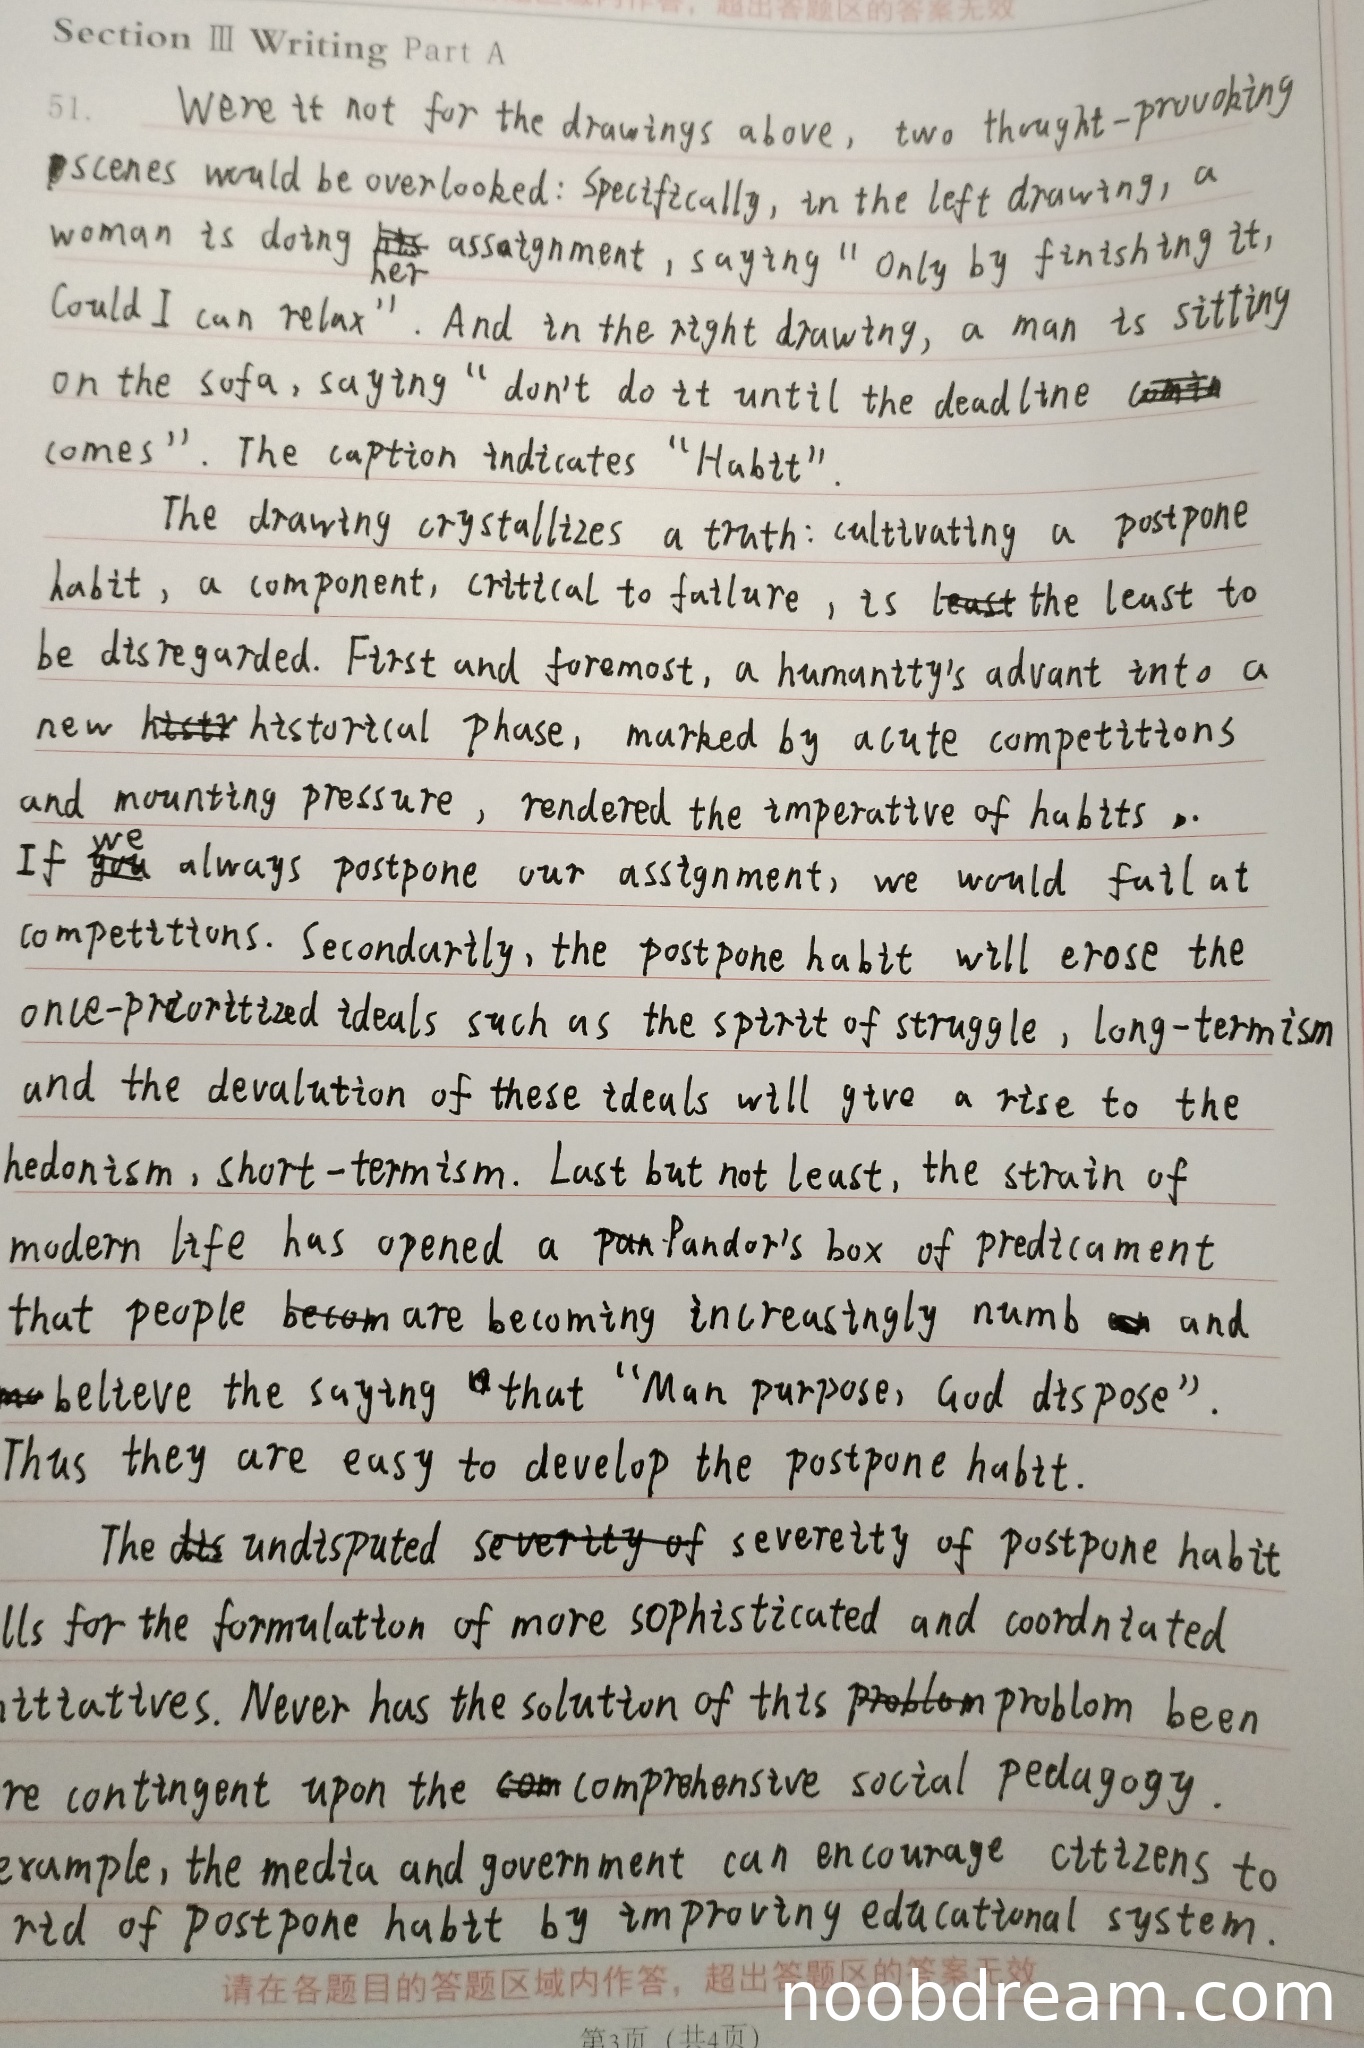 Section Ⅲ Writing Part A
51. Were it not for the drawings above, two thought-provoking
scenes would be overlooked: Specifically, in the left drawing, a
woman is doing her assaignment, saying " Only by finishing it,
Could I can relax". And in the right drawing, a man is sitting
on the sofa, saying " don't do it until the deadline
comes". The caption indicates "Habit".
The drawing crystallizes a truth: cultivating a postpone
habit, a component, critical to failure, is the least to
be disregarded. First and foremost, a humanity's advant into a
new historical phase, marked by acute competitions
and mounting pressure, rendered the imperative of habits.
If we always postpone our assignment, we would fail at
competitions. Secondarily, the postpone habit will erose the
once-prioritized ideals such as the spirit of struggle, long-termism
and the devalution of these ideals will give a rise to the
hedonism, short-termism. Last but not least, the strain of
modern life has opened a Pandor's box of predicament
that people are becoming increasingly numb and
believe the saying that "Man purpose, God dispose".
Thus they are easy to develop the postpone habit.
The undisputed severeity of postpone habit
lls for the formulation of more sophisticated and coordniated
nitiatives. Never has the solution of this problom been
re contingent upon the comprehensive social pedagogy.
example, the media and government can encourage citizens to
rid of postpone habit by improving educational system.
请在各题目的答题区域内作答，超出答题区的答案无效
noobdream.com
第3页（共4页）